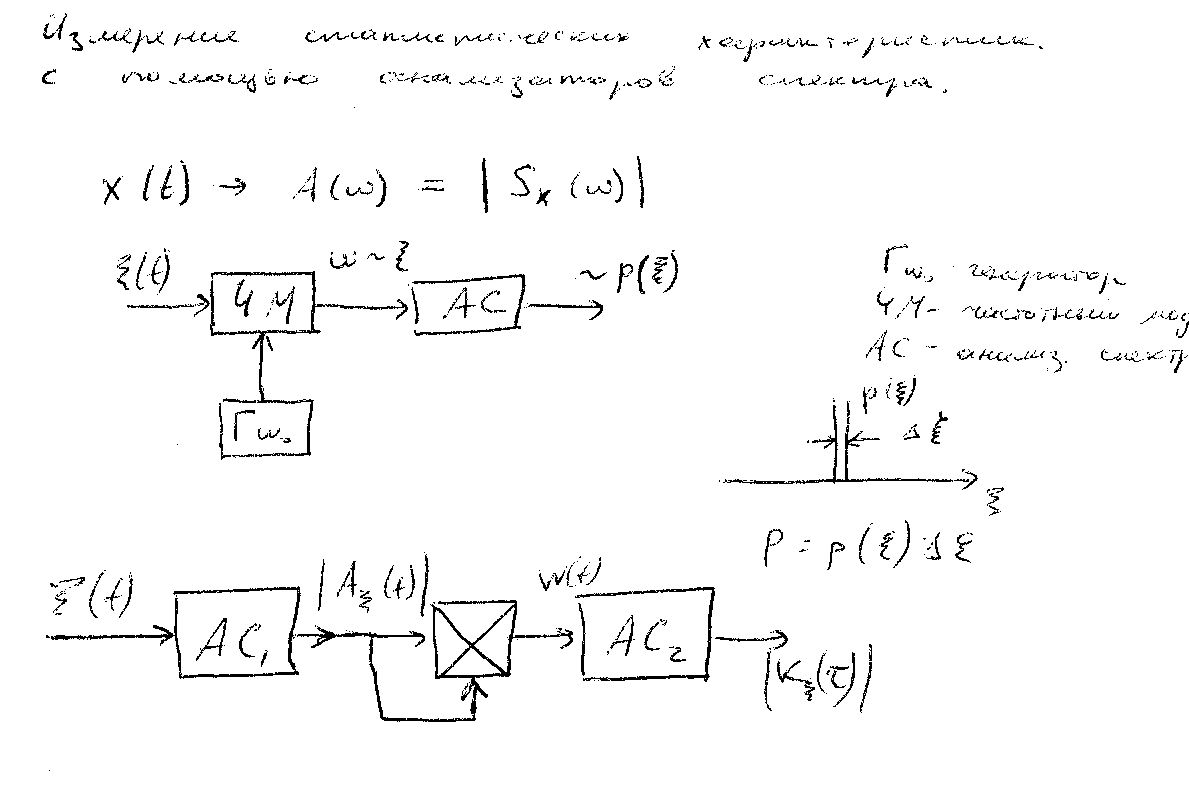 Измерение статистических характеристик.
с помощью анализаторов спектра.
x(t) → A(w) = |Sx(w)|
ξ(t) w~ξ ~p(ξ)
ЧМ АС
Гw₀
Гw₀ - генератор
ЧМ - частотный мод
АС - анализ. спектр
p(ξ)
Δξ
ξ
P = p(ξ)Δξ
ξ(t) |Aξ(t)| W(t)
АС₁ АС₂
|Kξ(τ)|